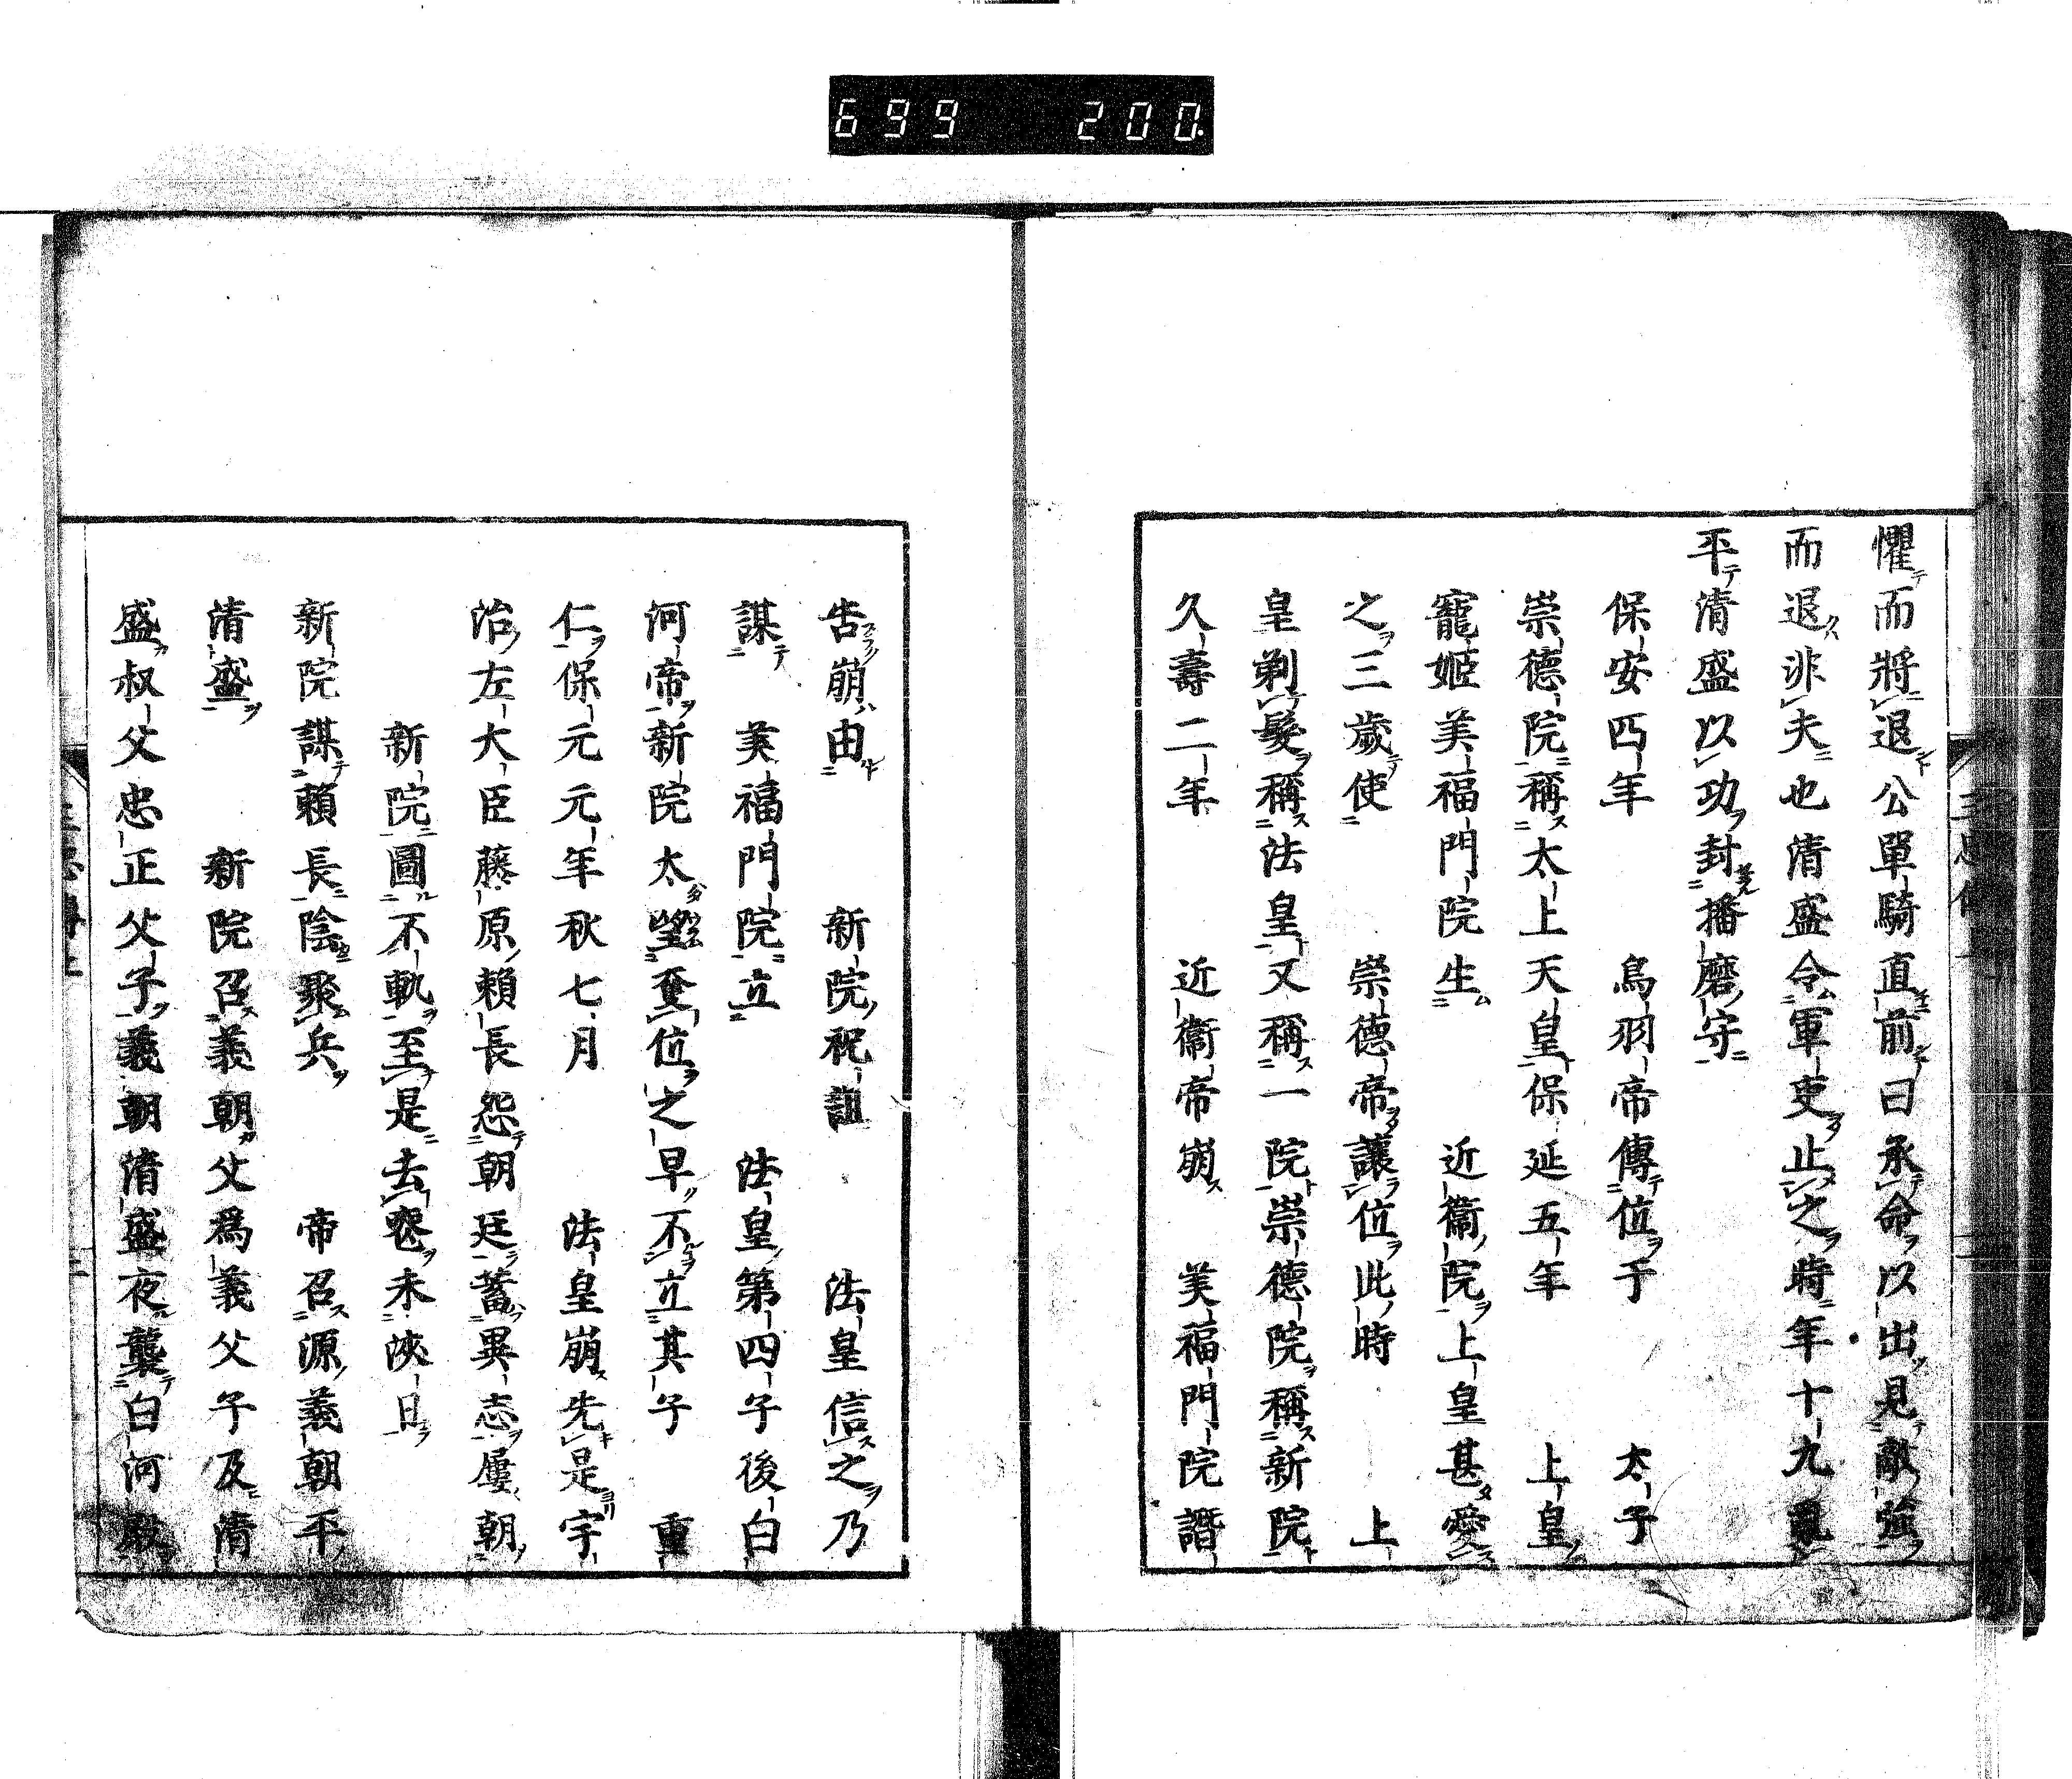 699 200.
懼而將退公單騎直前曰承命以出見敵強
而退非夫也清盛令軍吏止之時年十九亂
平清盛以功封播磨守
保安四年 鳥羽帝傳位于 太子
崇德院稱太上天皇保延五年 上皇
寵姬美福門院生 近衞院上皇甚愛
之三歲使 崇德帝讓位此時 上
皇剃髮稱法皇又稱一院崇德院稱新院
久壽二年 近衞帝崩 美福門院譖
告崩由 新院祝詛 法皇信之乃
謀 美福門院立 法皇第四子後白
河帝新院太望奪位之早不立其子 重
仁保元元年秋七月 法皇崩先是宇
治左大臣藤原賴長怨朝廷蓄異志屢朝
新院圖不軌至是去喪未浹日
新院謀賴長陰聚兵 帝召源義朝平
清盛 新院召義朝父爲義父子及清
盛叔父忠正父子義朝清盛夜襲白河殿